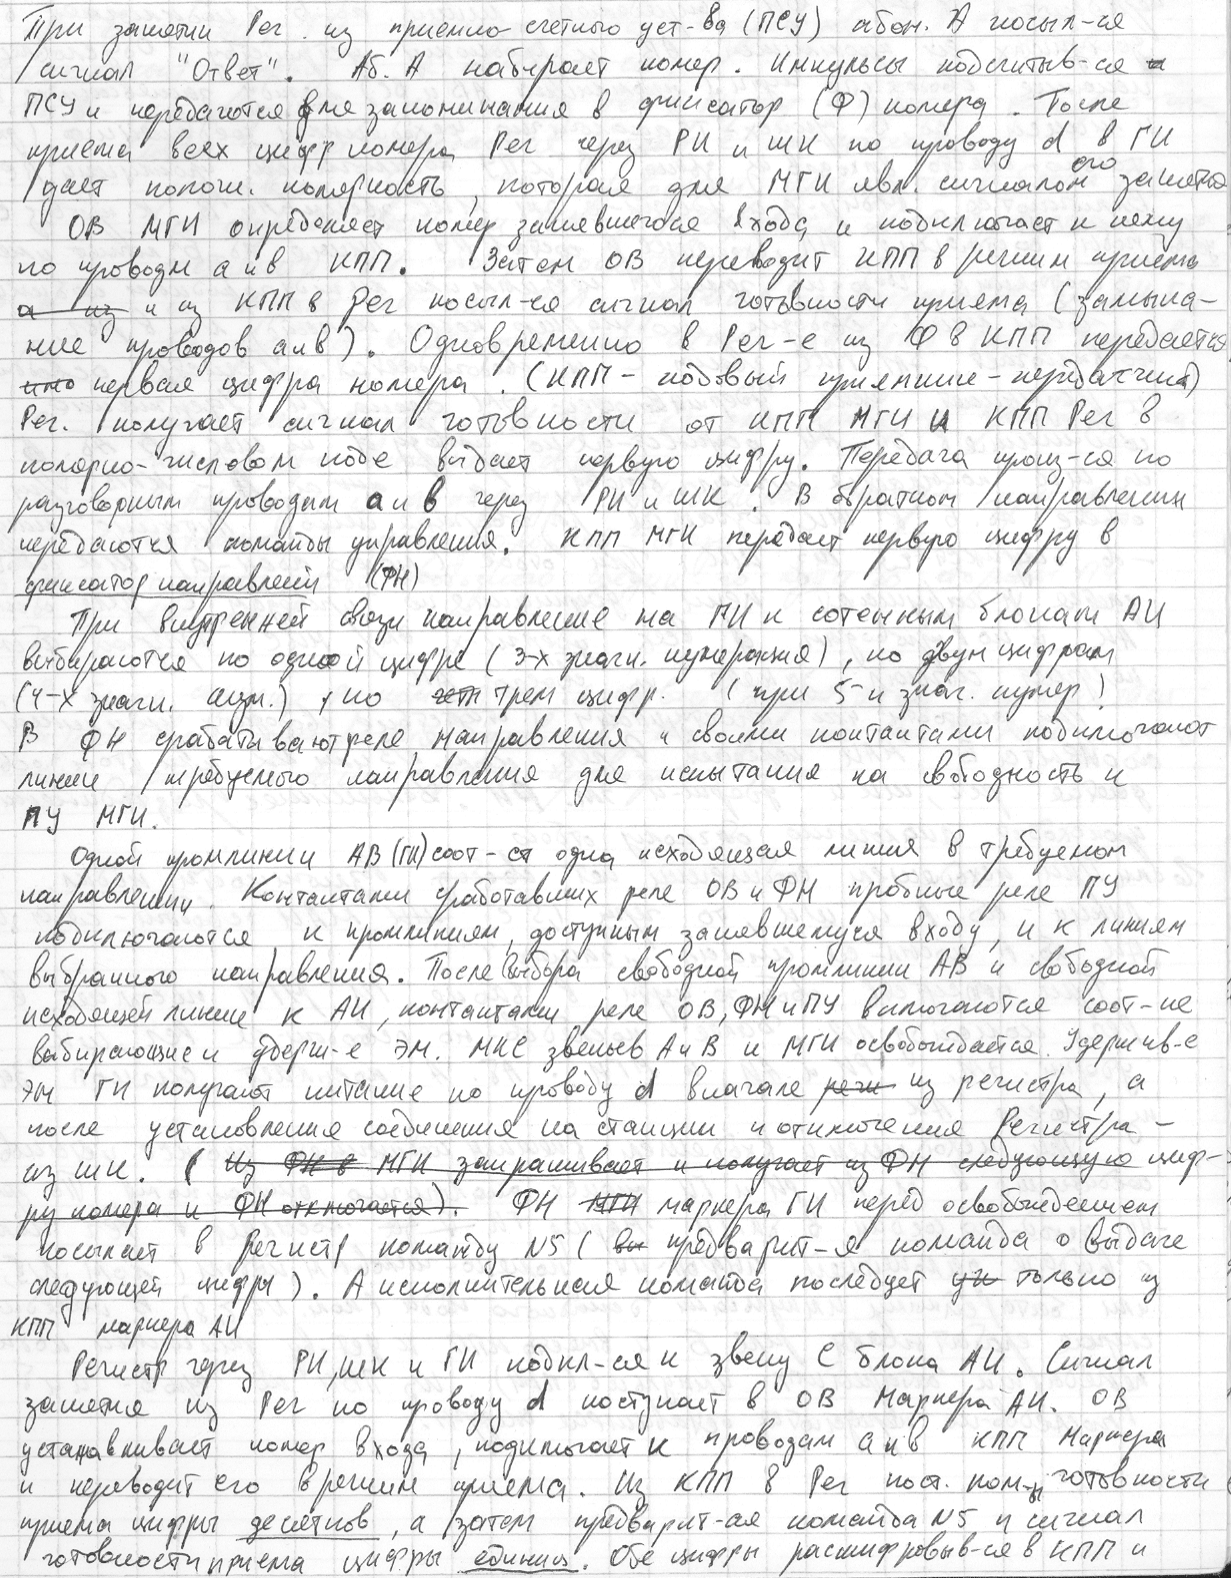 При занятии Рег. из приемно-счетного уст-ва (ПСУ) абон. А посыл-ся
сигнал "Ответ". Аб. А набирает номер. Импульсы подсчитыв-ся в
ПСУ и передаются для запоминания в фиксатор (Ф) номера. После
приема всех цифр номера Рег через РИ и ШК по проводу d в ГИ
дает полож. полярность, которая для МГИ явл. сигналом его занятия
ОВ МГИ определяет номер занявшегося входа и подключает к нему
по проводм а и в КПП. Затем ОВ переводит КПП в режим приема
а из и из КПП в Рег посыл-ся сигнал готовности приема (замыка-
ние проводов а и в). Одновременно в Рег-е из Ф в КПП передается
первая цифра номера. (КПП - кодовый приемник-передатчик)
Рег. получает сигнал готовности от КПП МГИ и КПП Рег в
полярно-числовом коде выдает первую цифру. Передача произ-ся по
разговорным проводам а и в через РИ и ШК. В обратном направлении
передаются команды управления. КПП МГИ передает первую цифру в
фиксатор направлений (ФН)
При внутренней связи направление на ГИ к сотенным блокам АИ
выбираются по одной цифре (3-х значн. нумерация), по двум цифрам
(4-х значн. нум.), по трем цифр. (при 5-и знач. нумер)
В ФН срабатывают реле направления и своими контактами подключают
линии требуемого направления для испытания на свободность к
ПУ МГИ.
Одной промлинии АВ (ГИ) соот-ет одна исходящая линия в требуемом
направлении. Контактами сработавших реле ОВ и ФН пробные реле ПУ
подключаются к промлиниям, доступным занявшемуся входу, и к линиям
выбранного направления. После выбора свободной промлинии АВ и свободной
исходящей линии к АИ, контактами реле ОВ, ФН и ПУ включаются соот-ие
выбирающие и удерж-е ЭМ. МКС звеньев А и В и МГИ освобождается. Удержив-е
ЭМ ГИ получают питание по проводу d вначале реги из регистра, а
после установления соединения на станции и отключения Регистра -
из ШК. (Из ФН в МГИ запрашивает и получает из ФН следующую циф-
ру номера и ФН отключается). ФН МГИ маркера ГИ перед освобождением
посылает в Регистр команду N5 (вы предварит-я команда о выдаче
следующей цифры). А исполнительная команда последует только из
КПП маркера АИ
Регистр через РИ, ШК и ГИ подкл-ся к звену С блока АИ. Сигнал
занятия из Рег по проводу d поступает в ОВ Маркера АИ. ОВ
устанавливает номер входа, подключает к проводам а и в КПП Маркера
и переводит его в режим приема. Из КПП в Рег пост. ком-ы готовности
приема цифры десятков, а затем предварит-ая команда N5 и сигнал
готовности приема цифры единиц. Обе цифры расшифровыв-ся в КПП и